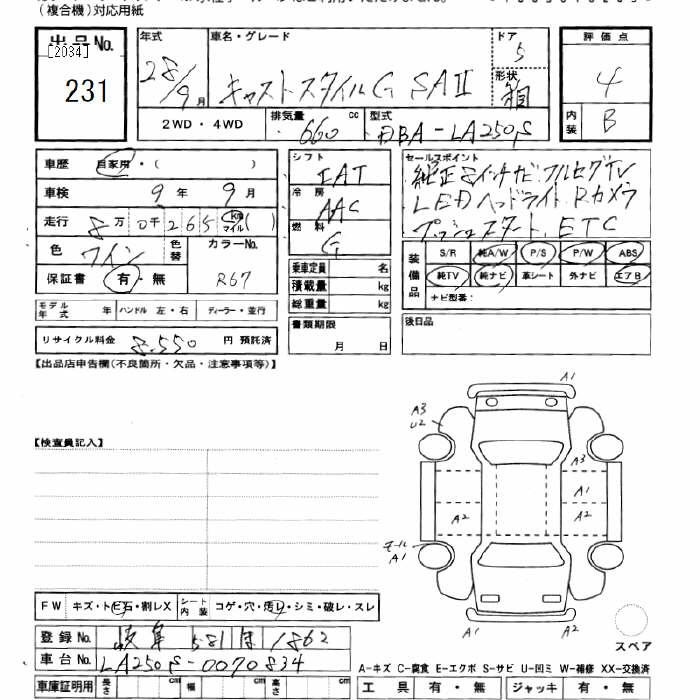 (複合機)対応用紙
出品No.
[2034]
231
年式
28/9月
車名・グレード
キャストスタイルG SAⅡ
ドア
5
形状
箱
評価点
4
内装
B
2WD・4WD
排気量
660 cc
型式
DBA-LA250S
車歴 自家用・( )
車検 9年 9月
走行 8万0千265 km マイル ( )
色 ワイン
色替
カラーNo.
R67
保証書 有・無
モデル年式 年 ハンドル 左・右 ディーラー・並行
リサイクル料金 8,550 円 預託済
シフト
IAT
冷房
AAC
燃料
G
乗車定員 名
積載量 kg
総重量 kg
書類期限
月 日
セールスポイント
純正8インチナビ.フルセグTV
LEDヘッドライト.Rカメラ
プッシュスタート.ETC
装備品
S/R 純A/W P/S P/W ABS
純TV 純ナビ 革シート 外ナビ エアB
ナビ型番:
後日品
【出品店申告欄(不良箇所・欠品・注意事項等)】
【検査員記入】
A1
A3
U2
A3
A1
A2
A2
モール
A1
A1
A2
スペア
FW キズ・トビ石・割レX シート内装 コゲ・穴・汚レ・シミ・破レ・スレ
登録No. 岐阜 581 1862
車台No. LA250S-0070834
車庫証明用 長さ cm 幅 cm 高さ cm
A-キズ C-腐食 E-エクボ S-サビ U-凹ミ W-補修 XX-交換済
工具 有・無 ジャッキ 有・無